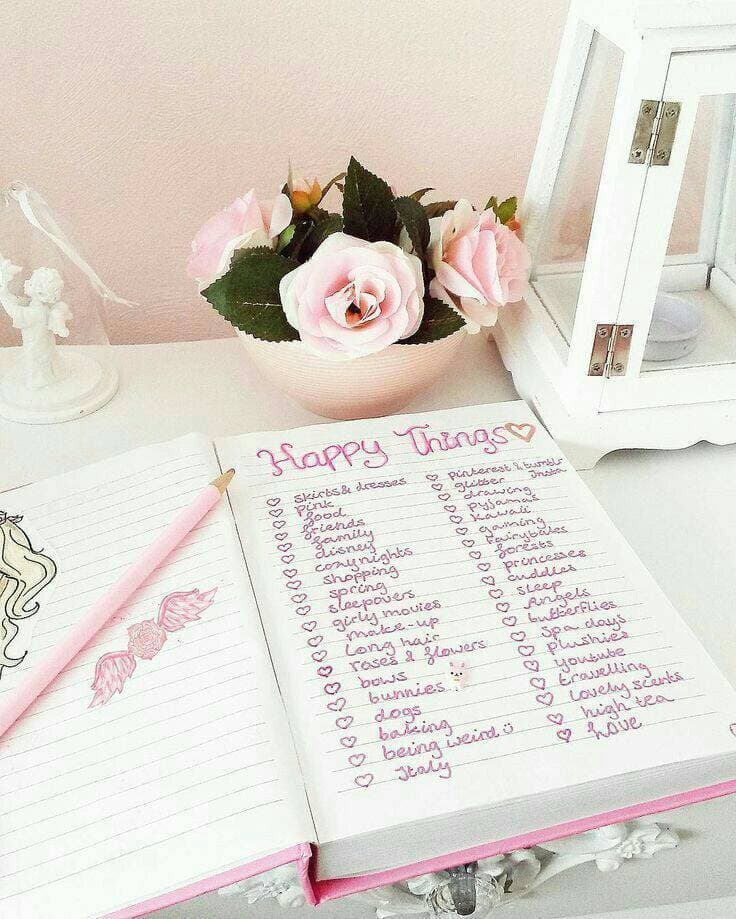 Happy Things
skirts & dresses
pink
food
friends
family
disney
cozy nights
shopping
spring
sleepovers
girly movies
make-up
long hair
roses & flowers
bows
bunnies
dogs
baking
being weird ☺
Italy
pinterest & tumblr
Insta
glitter
drawing
pyjamas
kawaii
gaming
fairytales
forests
princesses
cuddles
sleep
Angels
butterflies
spa days
plushies
youtube
travelling
lovely scents
high tea
LOVE